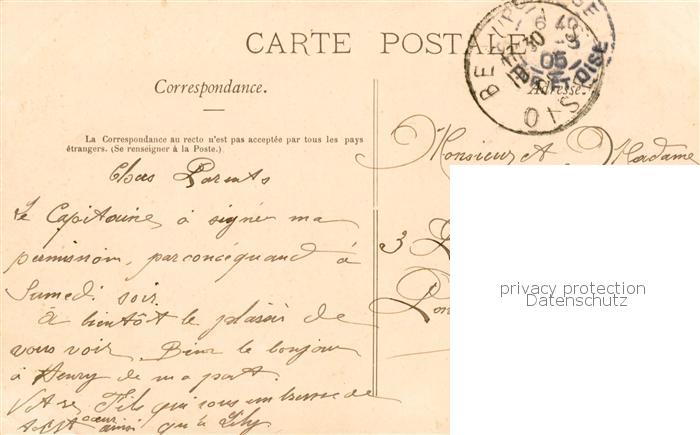 CARTE POSTALE
Correspondance.
Adresse.
La Correspondance au recto n'est pas acceptée par tous les pays
étrangers. (Se renseigner à la Poste.)
Chers Parents
Le Capitaine a signé ma
permission, par concéquand à
Samedi soir.
à bientôt le plaisir de
vous voir. Bien le bonjour
à Henry de ma part.
Votre Fils qui vous embrasse de
tout cœur ainsi que Lily
Monsieur et Madame
3
05
ET OISE
privacy protection
Datenschutz